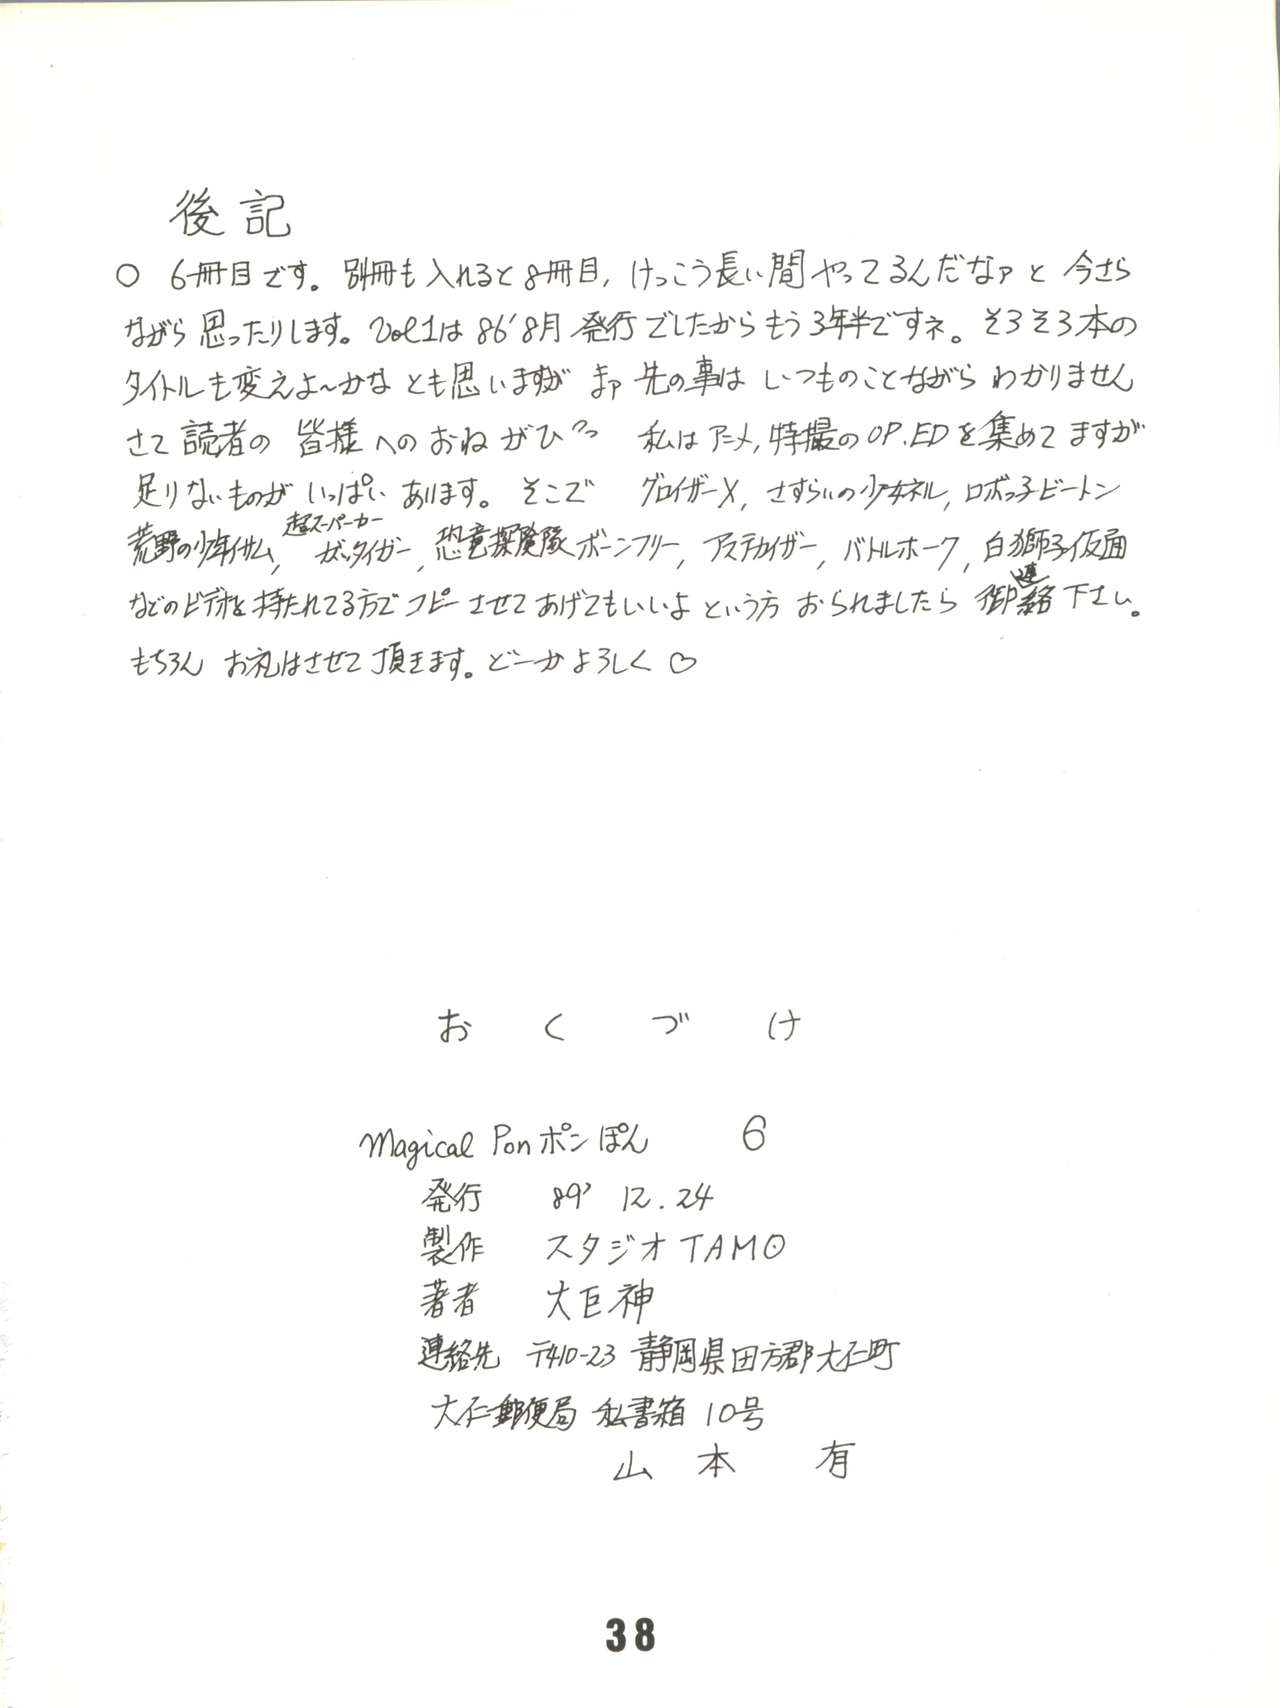 後記
○ 6冊目です。別冊も入れると8冊目，けっこう長い間やってるんだなァと今さら
ながら思ったりします。Vol1は86'8月発行でしたからもう3年半ですネ。そろそろ本の
タイトルも変えよ〜かなとも思いますが まァ先の事は いつものことながら わかりません
さて読者の皆様へのおねがひ 私はアニメ，特撮のOP.EDを集めてますが
足りないものが いっぱい あります。そこで グロイザーX，さすらいの少女ネル，ロボっ子ビートン
荒野の少年イサム，超スーパーカー ガッタイガー，恐竜探険隊ボーンフリー，アステカイザー，バトルホーク，白獅子仮面
などのビデオを持たれてる方でコピーさせてあげてもいいよ という方 おられましたら 御連絡下さい。
もちろん お礼はさせて頂きます。どーかよろしく♡
おくづけ
Magical Ponポンぽん 6
発行 89' 12.24
製作 スタジオTAMO
著者 大巨神
連絡先 〒410-23 静岡県田方郡大仁町
大仁郵便局 私書箱 10号
山本 有
38